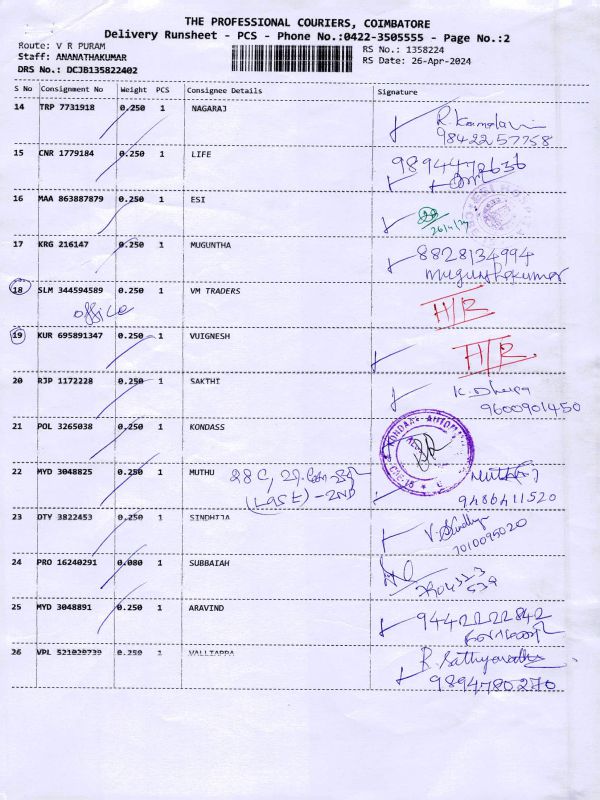 THE PROFESSIONAL COURIERS, COIMBATORE
Delivery Runsheet - PCS - Phone No.:0422-3505555 - Page No.:2
Route: V R PURAM
RS No.: 1358224
Staff: ANANATHAKUMAR
RS Date: 26-Apr-2024
DRS No.: DCJB135822402
S No Consignment No Weight PCS Consignee Details Signature
14 TRP 7731918 0.250 1 NAGARAJ
98422 57758
15 CNR 1779184 0.250 1 LIFE
9894478636
16 MAA 863887879 0.250 1 ESI
26/4/24
17 KRG 216147 0.250 1 MUGUNTHA 8828134994
18 SLM 344594589 0.250 1 VM TRADERS H/R
office
19 KUR 695891347 0.250 1 VUIGNESH H/R
20 RJP 1172228 0.250 1 SAKTHI
9600901450
21 POL 3265038 0.250 1 KONDASS
22 MYD 3048825 0.250 1 MUTHU 28 C,
(Last) - 2ND
9486411520
23 DTY 3822453 0.250 1 SINDHIJA
24 PRO 16240291 0.080 1 SUBBAIAH
25 MYD 3048891 0.250 1 ARAVIND 9442222842
26 VPL 521020739 0.250 1 VALLIAPPA
9894780270